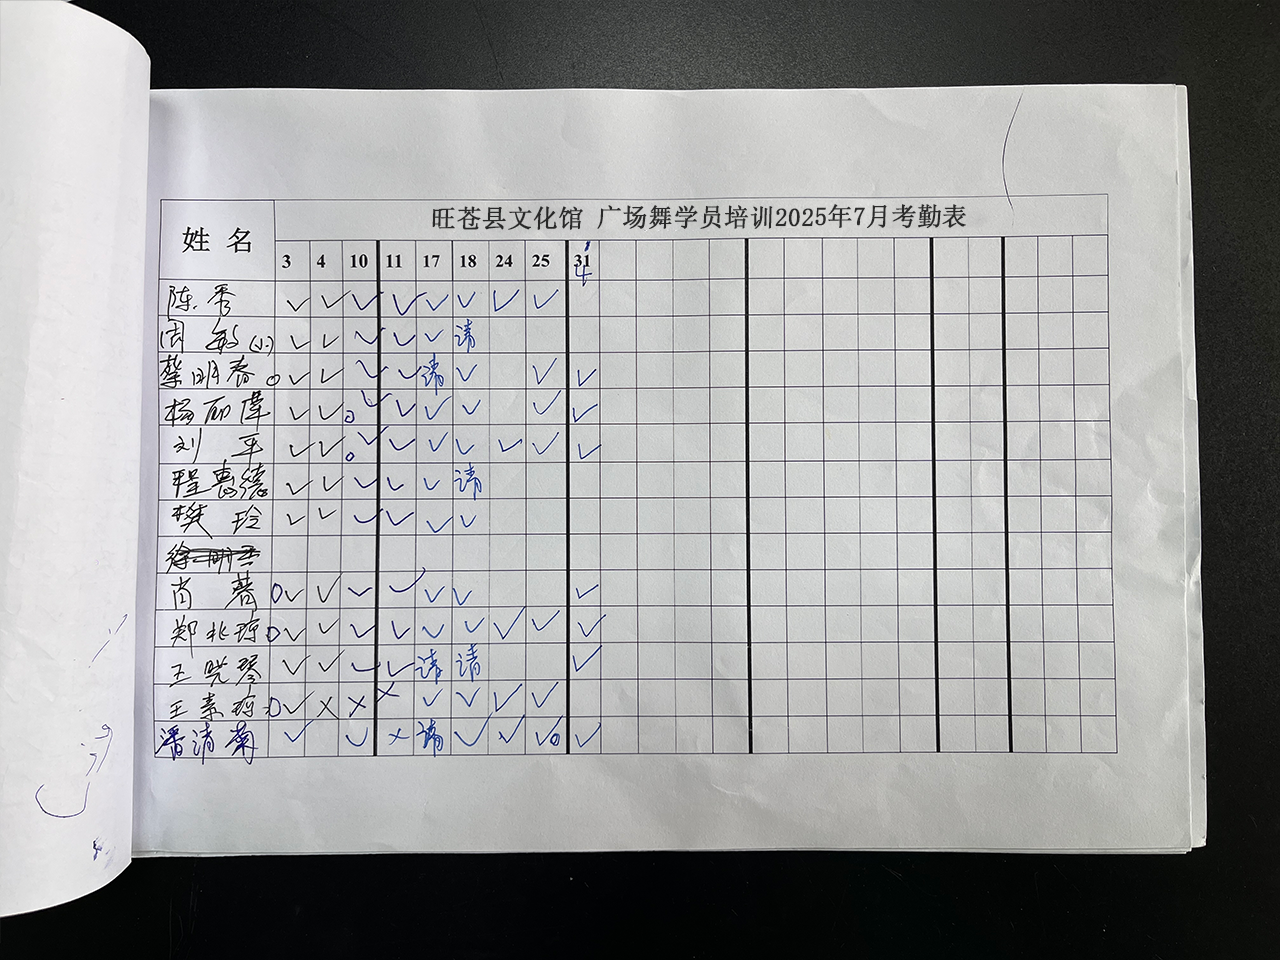 旺苍县文化馆 广场舞学员培训2025年7月考勤表
姓名 3 4 10 11 17 18 24 25 31
4
陈秀 ✓ ✓ ✓ ✓ ✓ ✓ ✓ ✓
周敏(小) ✓ ✓ ✓ ✓ ✓ 请
蔡明春 ○ ✓ ✓ ✓ ✓ 请 ✓ ✓ ✓
杨丽萍 ✓ ✓ ○ ✓ ✓ ✓ ✓ ✓ ✓
刘平 ✓ ✓ ○ ✓ ✓ ✓ ✓ ✓ ✓ ✓
程惠德 ✓ ✓ ✓ ✓ ✓ 请
樊玲 ✓ ✓ ✓ ✓ ✓ ✓
肖蓉 ○ ✓ ✓ ✓ ✓ ✓ ✓ ✓
郑兆琼 ○ ✓ ✓ ✓ ✓ ✓ ✓ ✓ ✓ ✓
王晓琴 ✓ ✓ ✓ ✓ 请 请 ✓
王素琼 ○ ✓ × × × ✓ ✓ ✓ ✓
潘清菊 ✓ ✓ × 请 ✓ ✓ ✓ ○ ✓